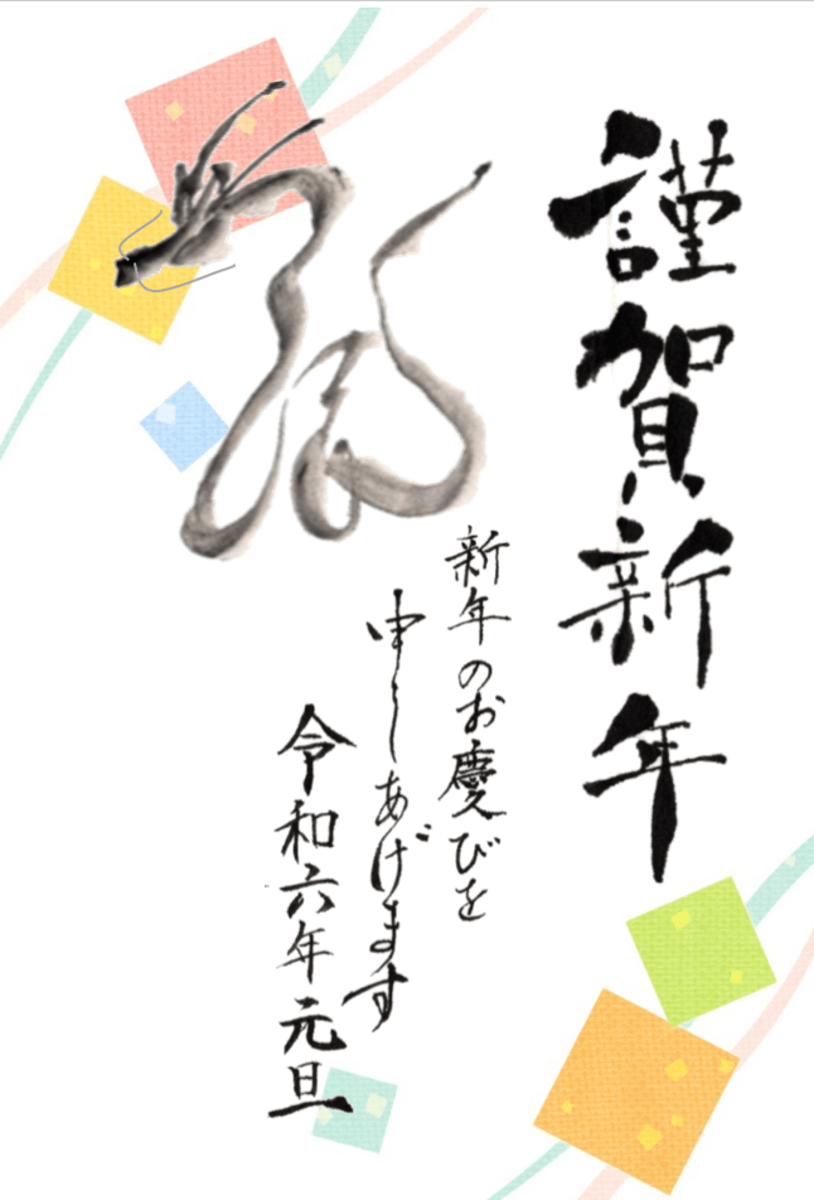 謹賀新年
新年のお慶びを
申しあげます
令和六年元旦